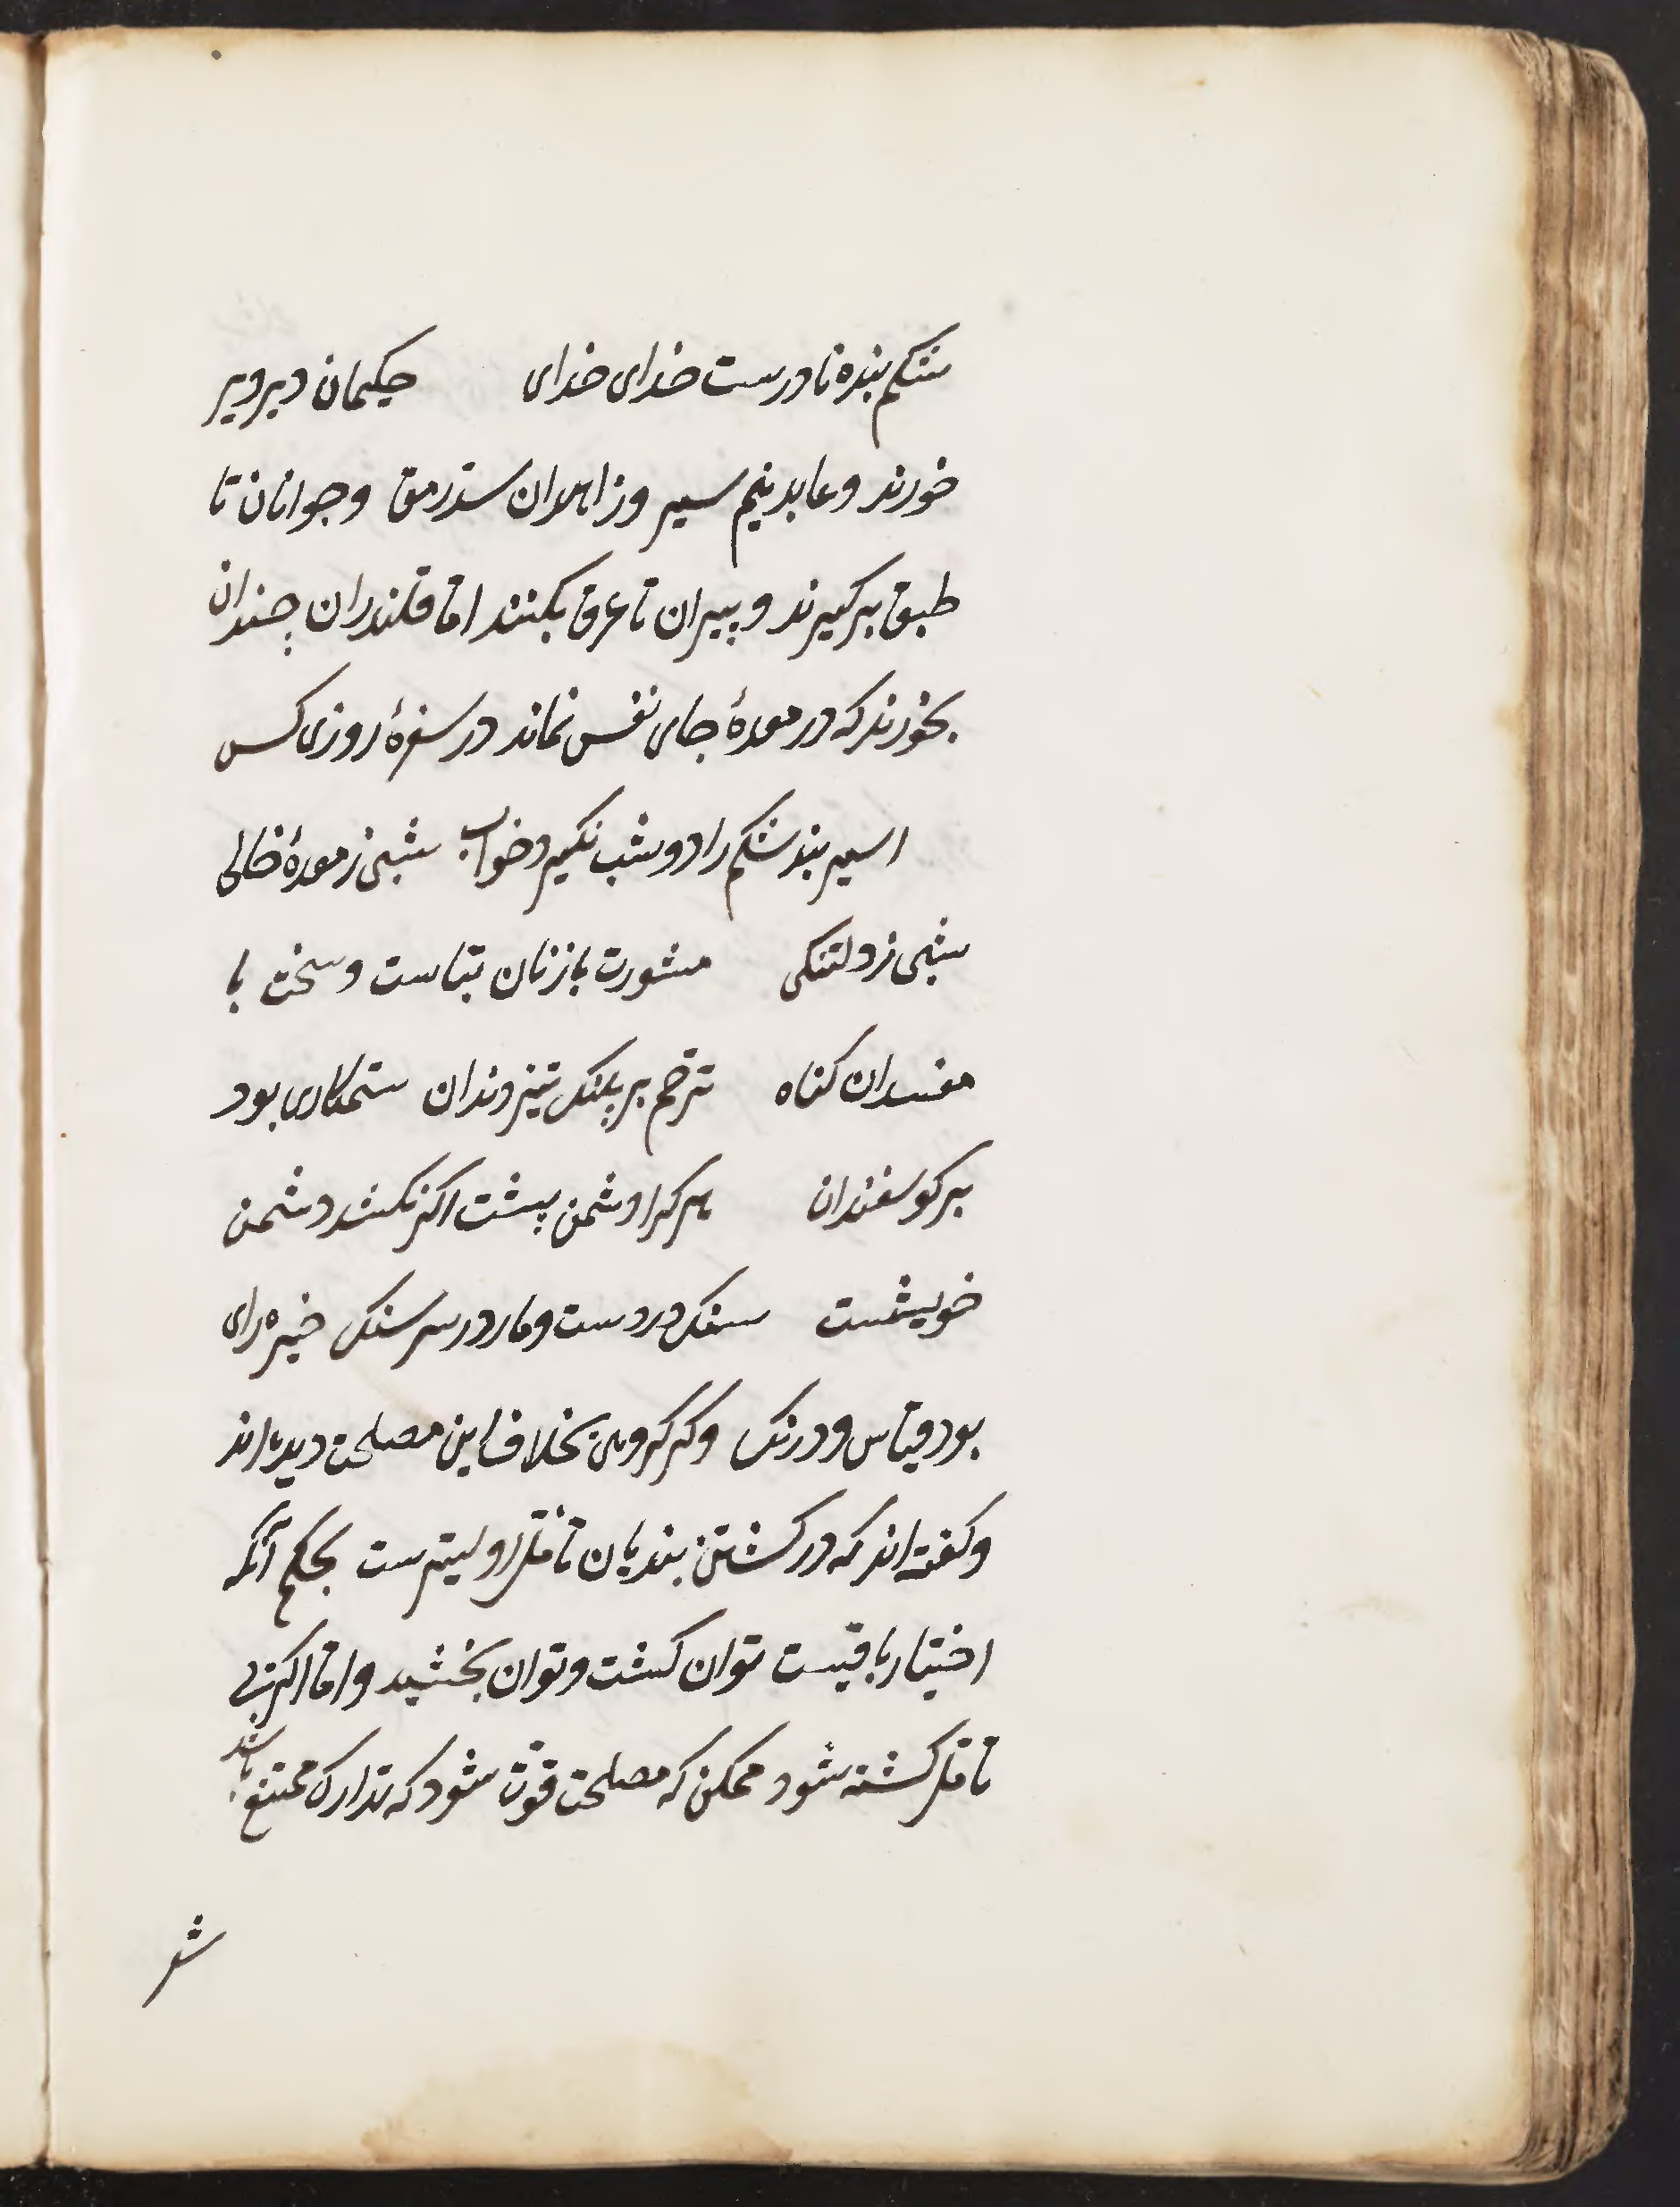 شکم بنده نادرست خدای خدای حکیمان دیر دیر
خورند و عابد نیم سیر و زاهدان سدّ رمق و جوانان تا
طبق برگیرند و پیران تا عرق بکنند امّا قلندران چندان
بخورند که در معدهٔ جای نفس نماند در سفرهٔ روزی کس
اسیر بند شکم را دو شب نگیرد خواب شبی ز معدهٔ خالی
شبی ز دلتنکی مشورت با زنان تباست و سخن با
مفسدان کناه ترحّم بر پلنک تیز دندان ستمکاری بود
بر کوسفندان هر کرا دشمن پیشت اکر نکشد دشمن
خویشست سنک در دست و مار در سر سنک خیره رای
بود قیاس و درنک وکر کروهی بخلاف این مصلحت دیده‌اند
و کفته‌اند که در کشتن بندیان تامّل اولیترست بحکم آنکه
اختیار باقیست توان کشت و توان بخشید و امّا اکر بی
تامّل کشته شود ممکن که مصلحت فوت شود که تدارک ممتنع باشد
شعر